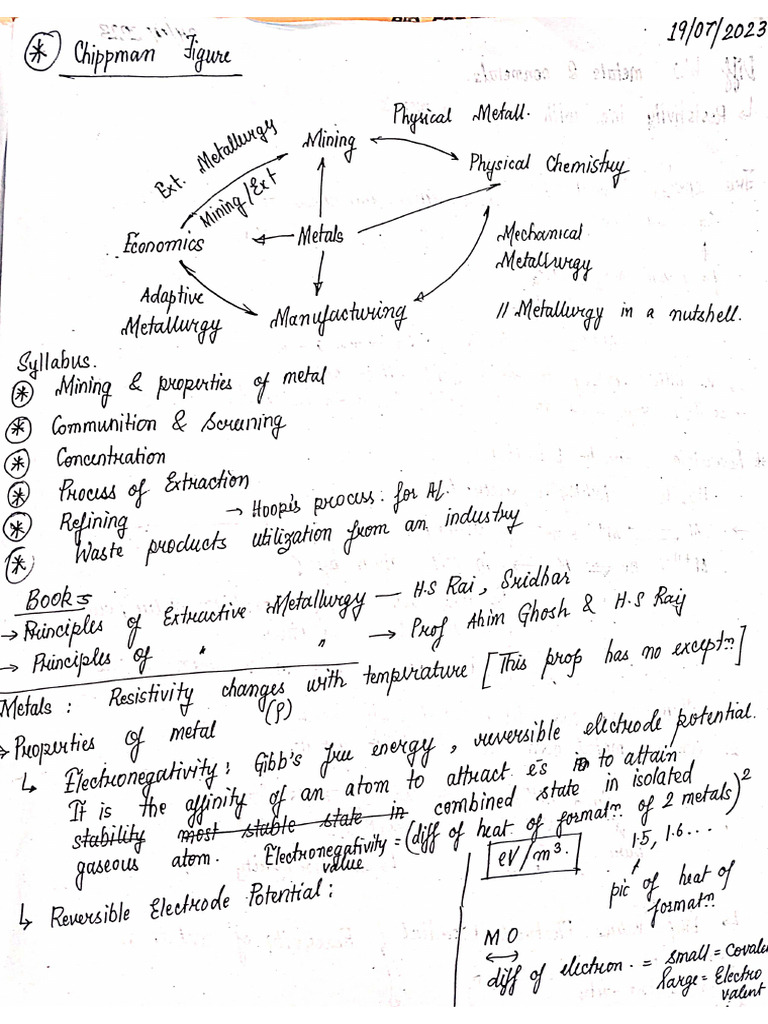 19/07/2023
* Chippman Figure
Physical Metall.
Ext. Metallurgy
Mining
Physical Chemistry
Mining/Ext
Economics
Metals
Mechanical
Metallurgy
Adaptive
Metallurgy
Manufacturing
// Metallurgy in a nutshell.
Syllabus.
* Mining & properties of metal
* Communition & Screening
* Concentration
* Process of Extraction
* Refining → Hoop's process. for Al.
* Waste products utilization from an industry
Books
→ Principles of Extractive Metallurgy — H.S Rai, Sridhar
→ Principles of " " → Prof Ahim Ghosh & H.S Ray
Metals : Resistivity changes with temperature [This prop has no exceptn]
(ρ)
→ Properties of metal
↳ Electronegativity : Gibb's free energy, reversible electrode potential.
It is the affinity of an atom to attract e's to attain
stability most stable state in combined state in isolated
gaseous atom. Electronegativity value = (diff of heat of formatn of 2 metals)²
eV/m³.
1.5, 1.6...
of heat of
formatn
↳ Reversible Electrode Potential :
M O
↔
diff of electron. = small = Covale
large = Electro
valent